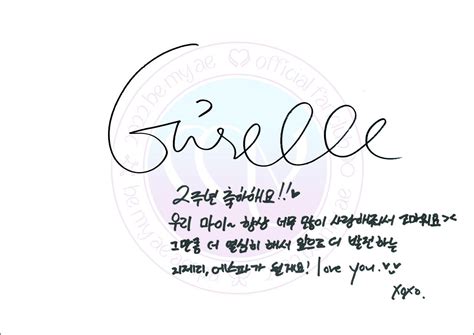 Giselle
2주년 축하해요!!♥
우리 마이~ 항상 너무 많이 사랑해줘서 고마워요><
그만큼 더 열심히 해서 앞으로 더 발전하는
지젤이, 에스파가 될게요! love you.♥♥
xoxo.
be my ae
official fan
2022 be my ae
be my ae